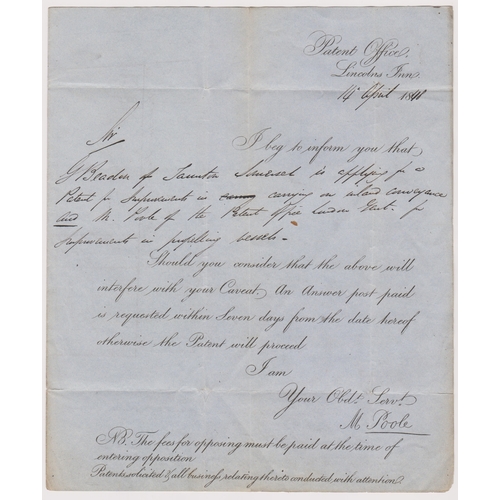 Patent Office.
Lincolns Inn.
14 April 1841
Sir
I beg to inform you that
G Beadon of Taunton Somerset is applying for a
Patent for Improvements in carrying on inland conveyance
and M. Poole of the Patent Office London Gent. for
Improvements in propelling vessels -
Should you consider that the above will
interfere with your Caveat, An Answer post paid
is requested within Seven days from the date hereof
otherwise the Patent will proceed
I am
Your Obdt. Servt.
M. Poole
NB. The fees for opposing must be paid at the time of
entering opposition
Patents solicited & all business relating thereto conducted with attention.